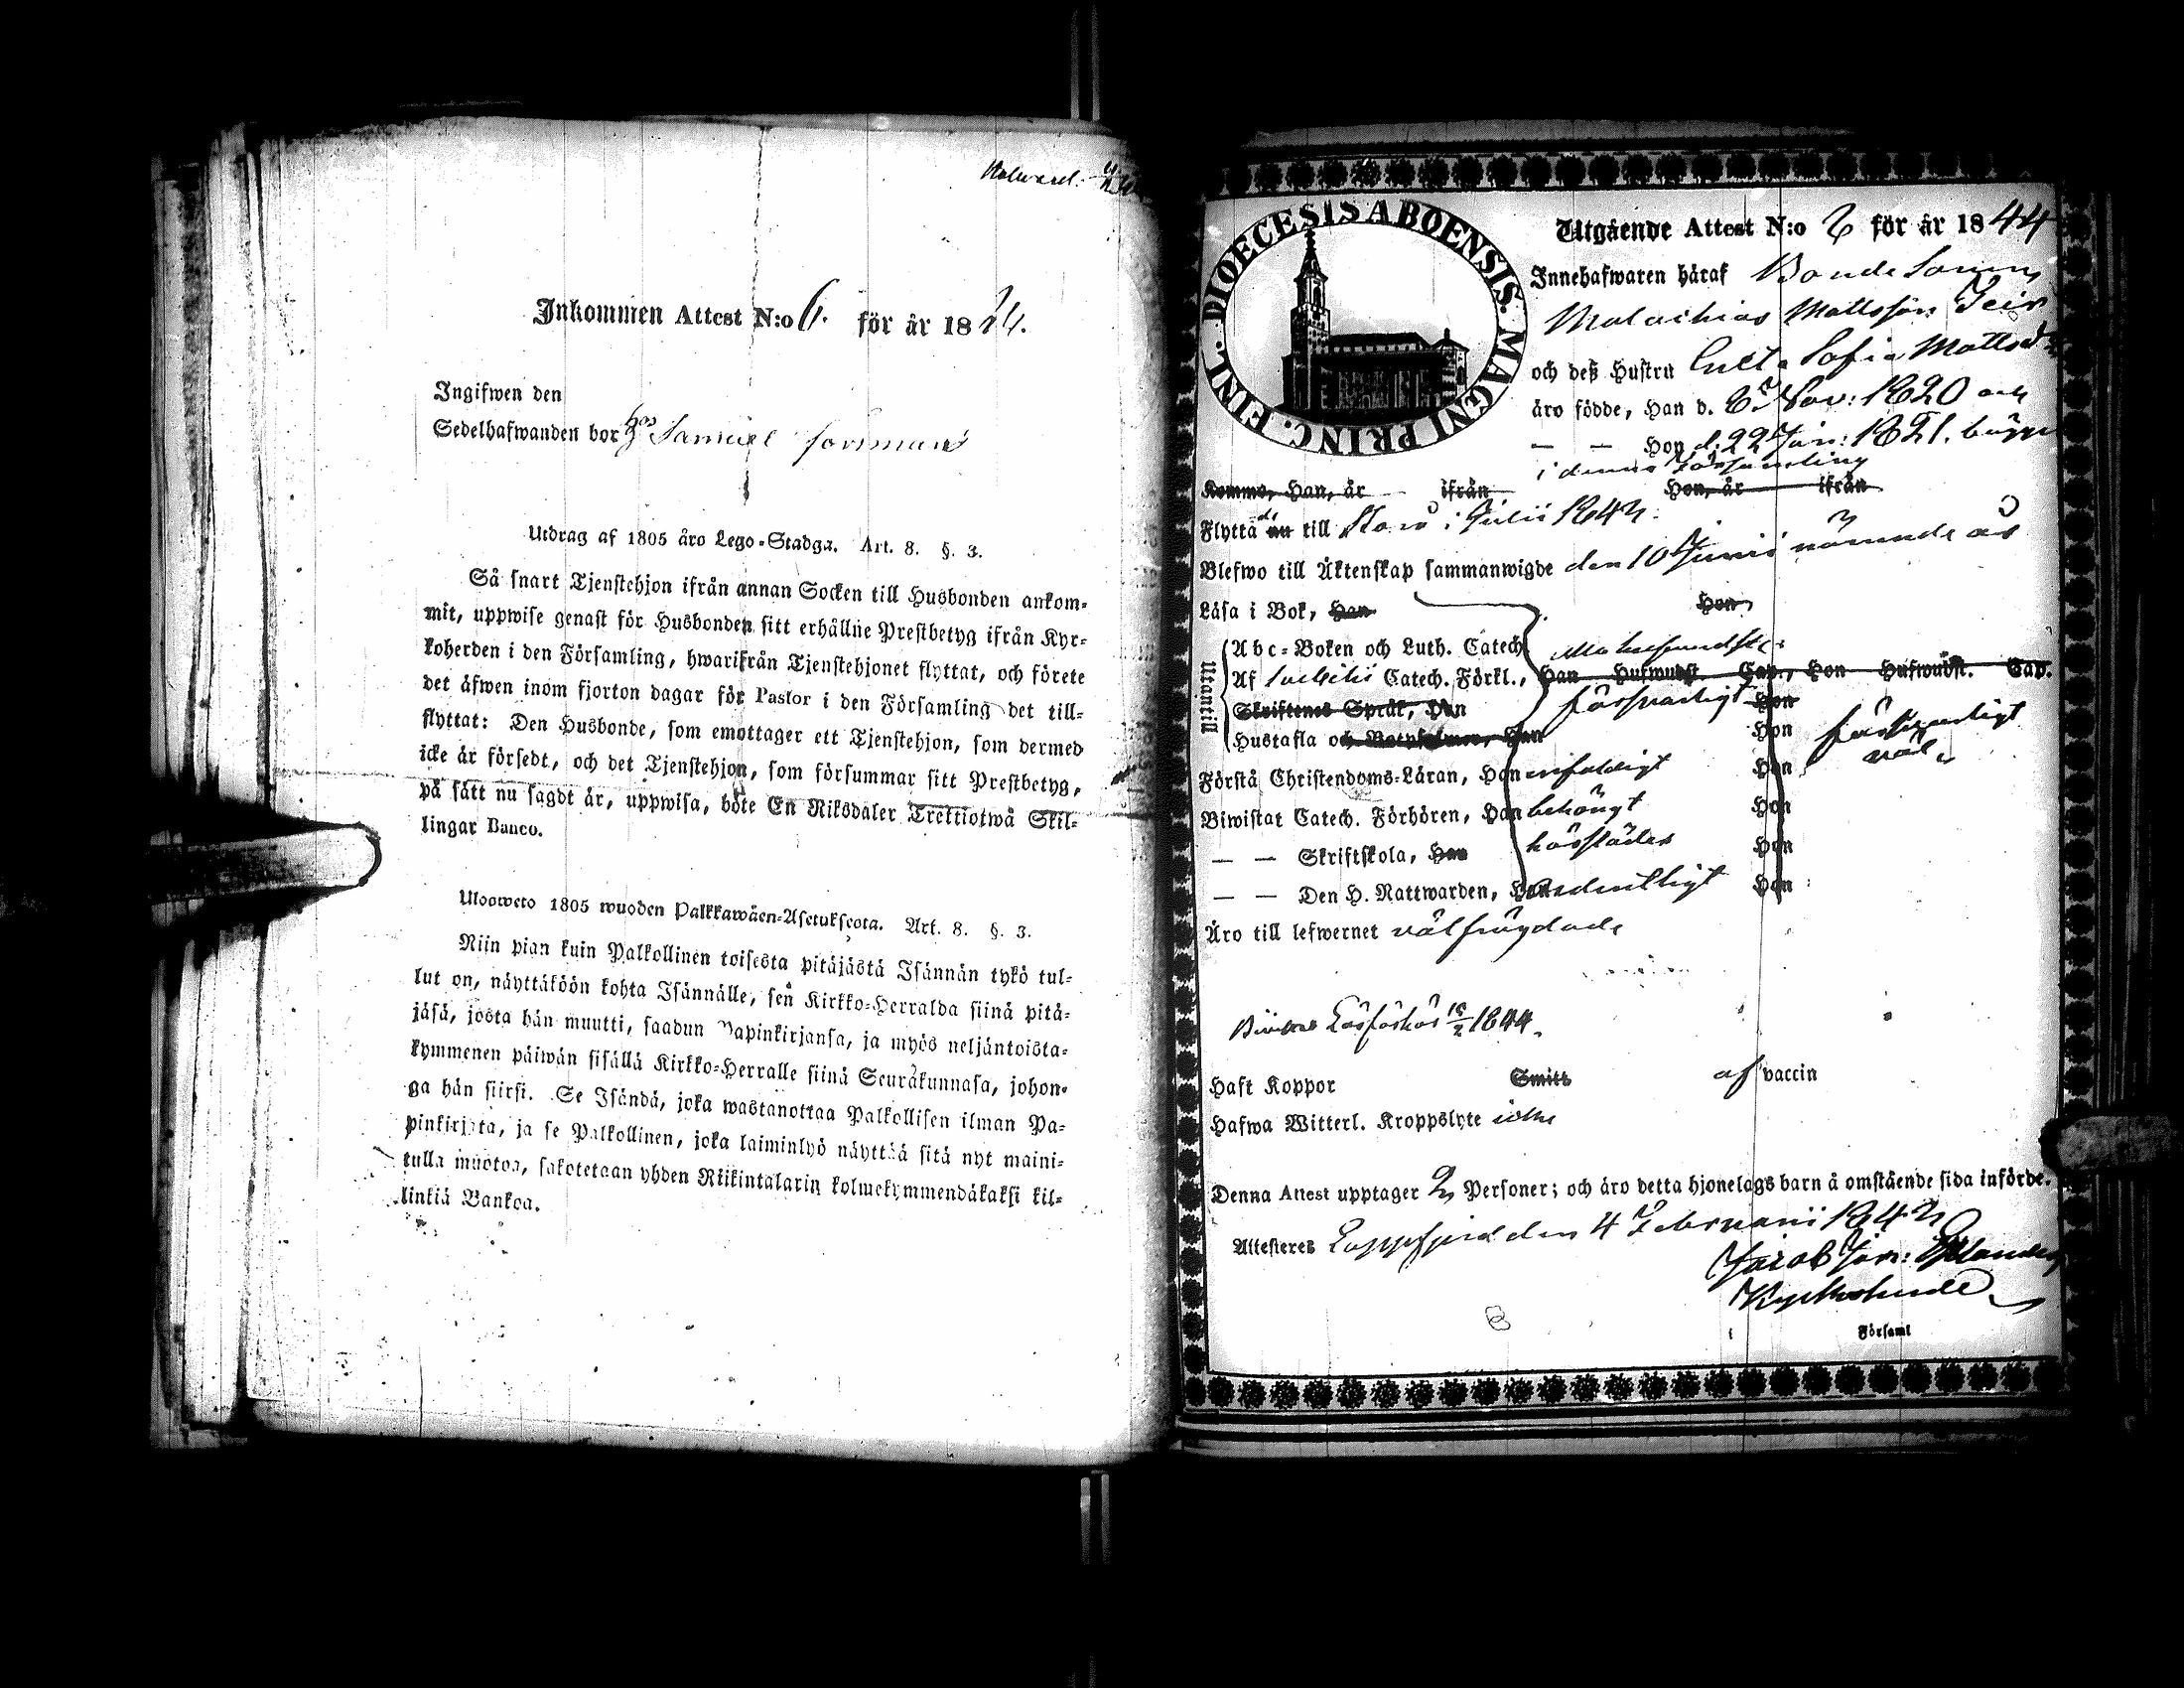 Inkommen Attest N:o 6. för år 1824.
Ingifwen den
Sedelhafwanden bor hos Samuel
Utdrag af 1805 års Lego-Stadga. Art. 8. §. 3.
Så snart Tjenstehjon ifrån annan Socken till Husbonden ankom-
mit, uppwise genast för Husbonden sitt erhållne Prestbetyg ifrån Kyr-
koherden i den Församling, hwarifrån Tjenstehjonet flyttat, och förete
det äfwen inom fjorton dagar för Pastor i den Församling det till-
flyttat: Den Husbonde, som emottager ett Tjenstehjon, som dermed
icke är försedt, och det Tjenstehjon, som försummar sitt Prestbetyg,
på sätt nu sagdt är, uppwisa, böte En Riksdaler Trettiotwå Skil-
lingar Banco.
Uloosweto 1805 wuoden Palkkawäen-Asetuksesta. Art. 8. §. 3.
Niin pian kuin Palkollinen toisesta pitäjästä Isännän tykö tul-
lut on, näyttäköön kohta Isännälle, sen Kirkko-Herralda siinä pitä-
jäsä, josta hän muutti, saadun Papinkirjansa, ja myös neljäntoista-
kymmenen päiwän sisällä Kirkko-Herralle siinä Seurakunnasa, johon-
ga hän siirsi. Se Isändä, joka wastanottaa Palkollisen ilman Pa-
pinkirjata, ja se Palkollinen, joka laiminlyö näyttää sitä nyt maini-
tulla muotoa, sakotetaan yhden Riikintalarin kolmekymmendäkaksi kil-
linkiä Bankoa.
DIOECESIS ABOENSIS. MAGNI PRINC. FINL.
Utgående Attest N:o 6 för år 1844
Innehafwaren häraf Bonde Sonen
Malachias Mattsson
och deß Hustru Greta Sofia Mattsdr
äro födde, Han d. 6 Nov: 1820 och
— — Hon d. 22 Jan: 1821. bägge
i denna Församling
Komma, Han, år ifrån Hon, år ifrån
Flyttade nu till i Julii 1842.
Blefwo till Äktenskap sammanwigde den 10 Junii nämnde år
Läsa i Bok, Han Hon
Utantill
Abc-Boken och Luth. Catech.
Af Svebilii Catech. Förkl., Han Hufwudst. Cap., Hon Hufwudst. Cap.
Skriftenes Språk, Han försvarligt Hon
Hustafla och Botpsalmer, Han Hon försvarligt
Förstå Christendoms-Läran, Han enfaldigt Hon väl
Biwistat Catech. Förhören, Han behörigt Hon
— — Skriftskola, Han härstädes Hon
— — Den H. Nattwarden, Han ordentligt Hon
Äro till lefwernet välfrägdade
Läsförhör 1844.
Haft Koppor Smitt af vaccin
Hafwa Witterl. Kroppslyte icke
Denna Attest upptager 2 Personer; och äro detta hjonelags barn å omstående sida införde.
Attesteres Lappfjerd den 4 Februarii 184
Jacob Jon:
Kyrkoherde
i Församl